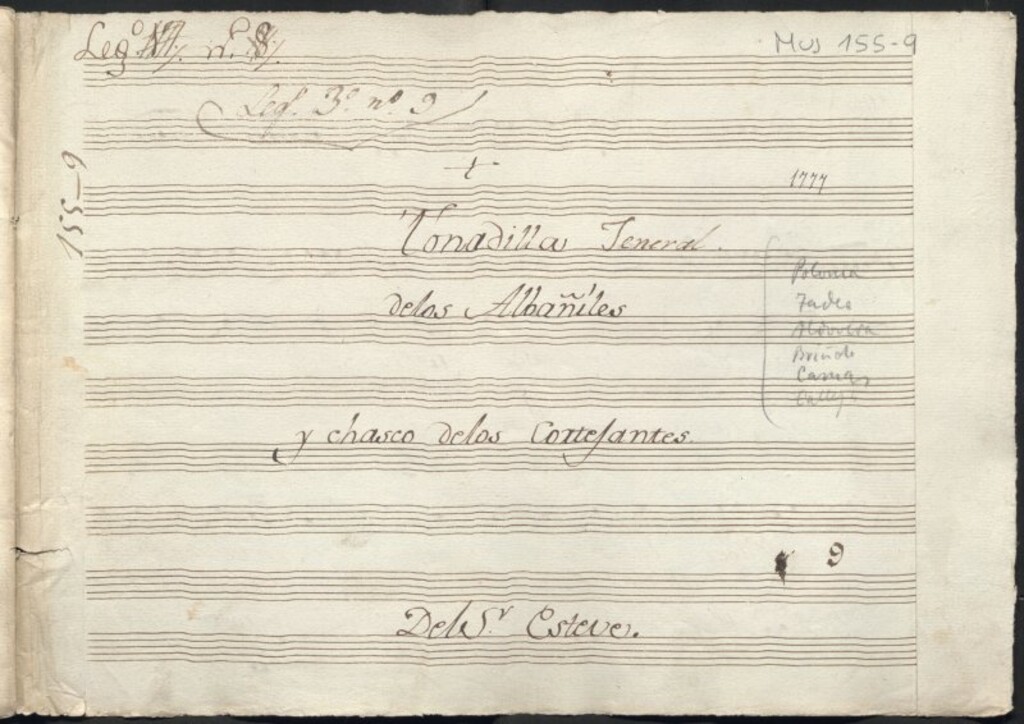 Leg.º nº 8.
Mus 155-9
Legº. 3º. nº 9
155-9
1777
Tonadilla Jeneral.
de los Albañiles
Polonia
Tadeo
Briñole
Camas
y chasco de los Cortejantes.
9
Del Sr. Esteve.